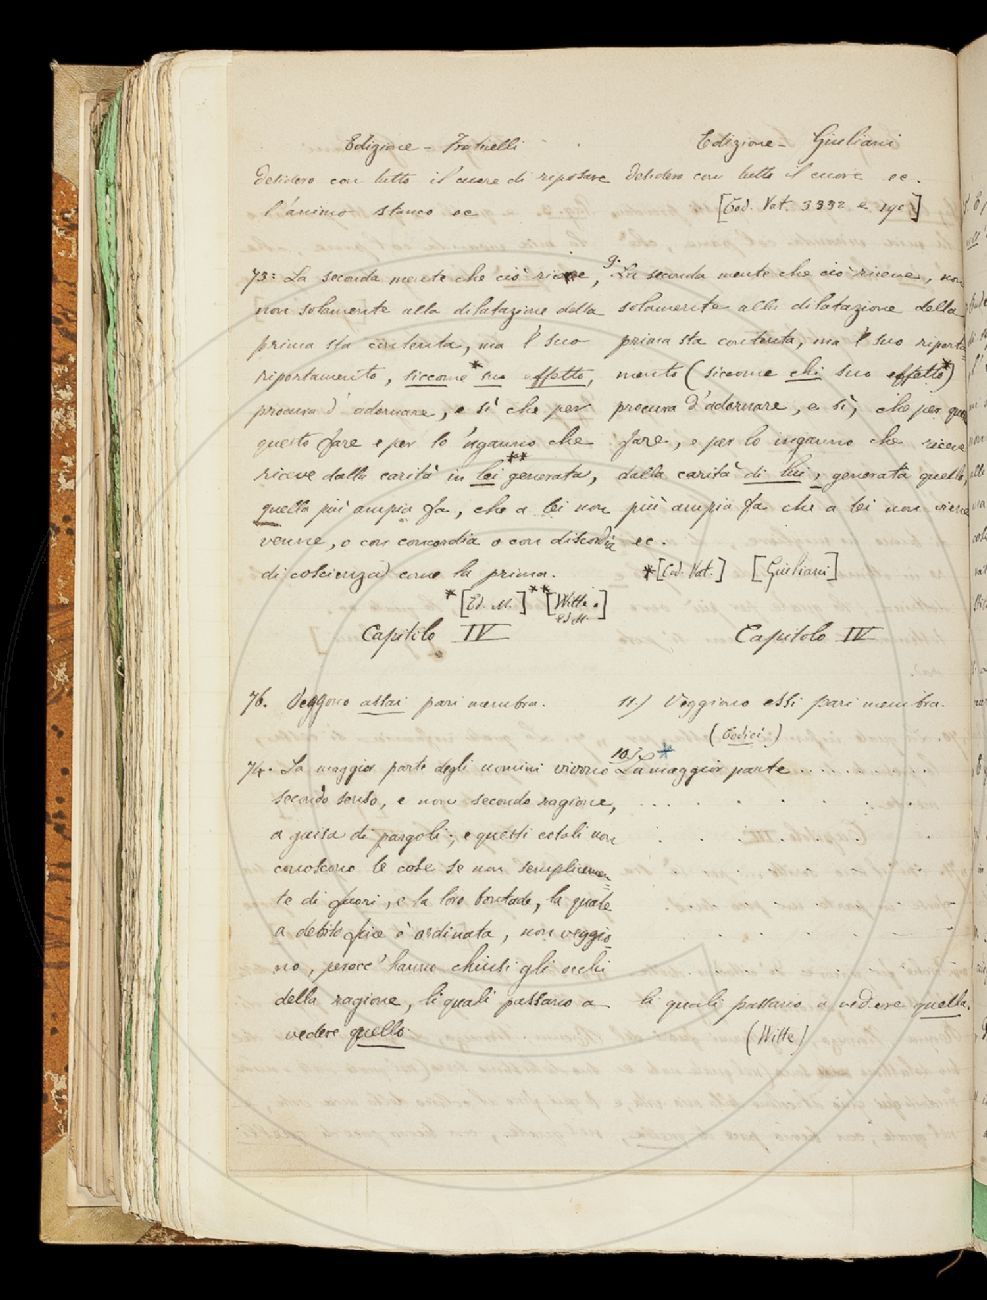 Edizione - Fraticelli
desidero con tutto il cuore di riposare
l'animo stanco ec
73: La seconda mente che ciò riceve,
non solamente alla dilatazione della
prima sta contenta, ma 'l suo
riportamento, siccome * suo effetto,
procura d'adornare, e sì che per
questo fare e per lo 'nganno che
riceve dalla carità in lei ** generata,
quella più ampia fa, che a lei non
venne, o con concordia o con discordia
di coscienza) come la prima.
* [Ed. M.] ** [Witte.
ed M.]
Capitolo IV
76. Veggono assai pari membra.
74. La maggior parte degli uomini vivono
secondo senso, e non secondo ragione,
a guisa di pargoli; e questi cotali non
conoscono le cose se non semplicemen=
te di fuori, e la loro bontade, la quale
a debito fine è ordinata, non veggio=
no, perocc' hanno chiusi gli occhi
della ragione, li quali passano a
vedere quello.
Edizione - Giuliani
desidero con tutto il cuore ec.
[Cod. Vat. 3332 e 190]
9. La seconda mente che ciò riceve, non
solamente alla dilatazione della
prima sta contenta, ma 'l suo riporta=
mento (siccome chi suo effetto *)
procura d'adornare, e sì, che per questo
fare, e per lo inganno che riceve
dalla carità di lui, generata quella
più ampia fa che a lei non viene
ec.
* [Cod. Vat.] [Giuliani]
Capitolo IV
11) Veggiono essi pari membra.
(Codici)
10) * La maggior parte . . . . . . . .
li quali passano a vedere quella.
(Witte)